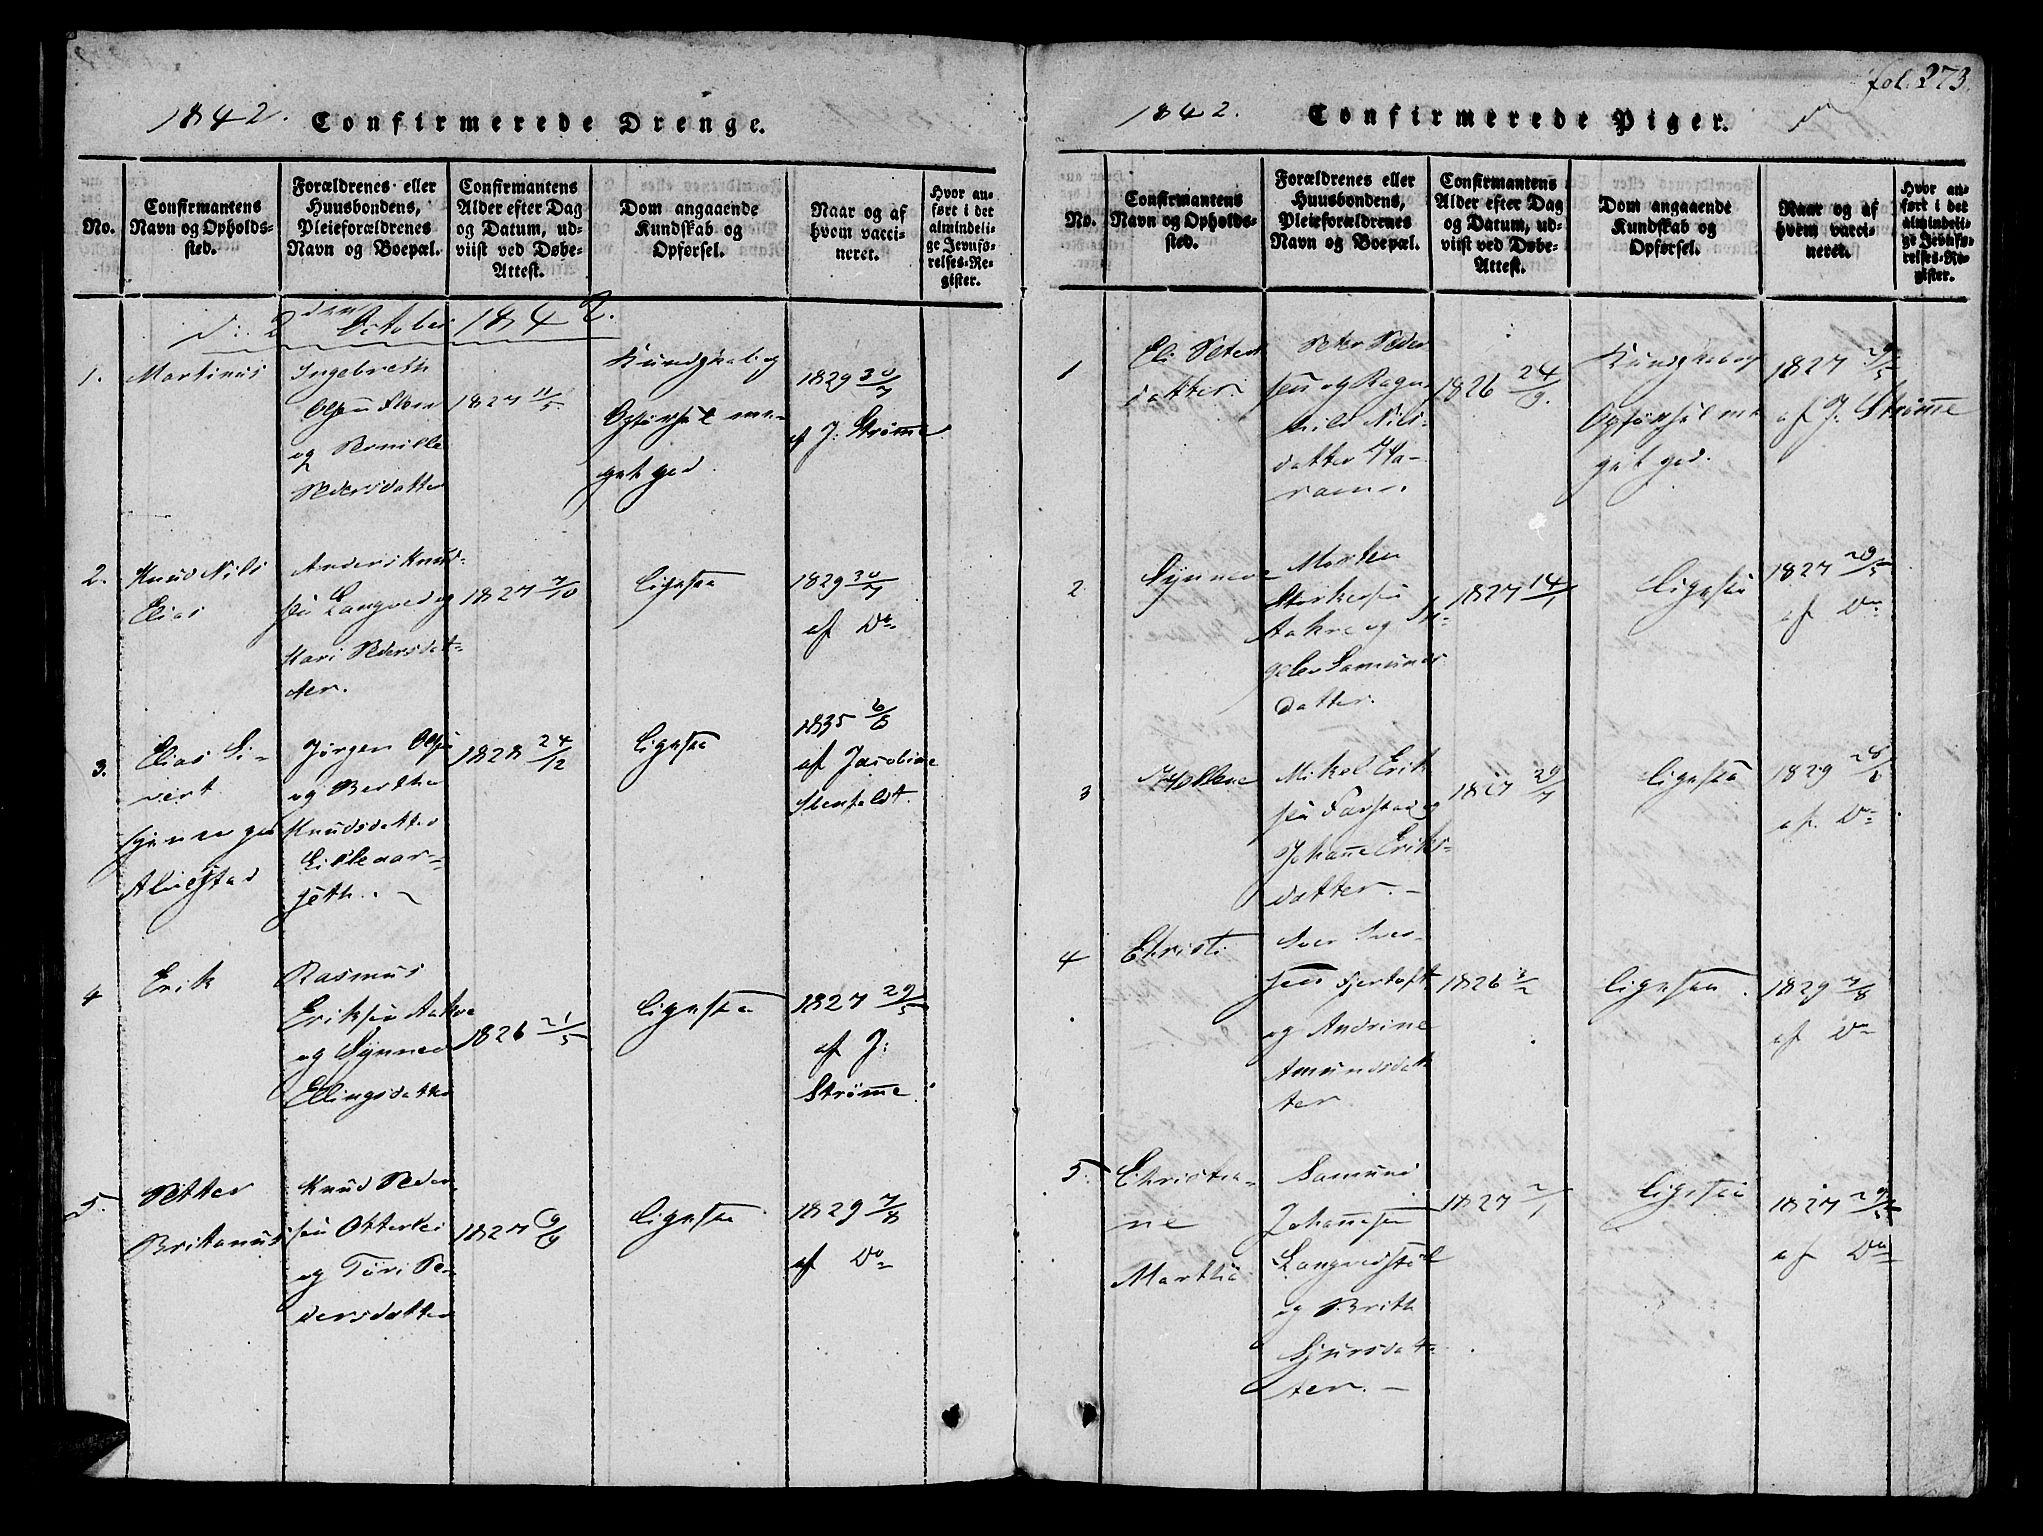 fol. 273.
1842. Confirmerede Drenge.
No.
Confirmantens
Navn og Opholds-
sted.
Forældrenes eller
Huusbondens,
Pleieforældrenes
Navn og Boepæl.
Confirmantens
Alder efter Dag
og Datum, ud-
viist ved Døbe-
Attest.
Dom angaaende
Kundskab og
Opførsel.
Naar og af
hvem vacci-
neret.
Hvor an-
ført i det
almindeli-
ge Jevnfø-
relses-Re-
gister.
d: 2den October 1842.
1.
Martinus
Ingebreth
Olsen
og Pernille
Pedersdatter
1827 11/5
Kundskab og
Opførsel me-
get god.
1829 30/7
af J: Strømme
2.
Knud Nils
Elias
Anders Knud-
sen Longved og
Kari Pedersdat-
ter.
1827 7/10
Ligesaa
1829 30/7
af Do
3.
Elias Si-
vert
Alvestad
Jørgen Olsen
og Berthe
Knudsdatter
Lillevar-
seth.
1828 24/12
Ligesaa
1835 6/8
af Jacobine
Stenfeldt.
4
Erik
Rasmus
Eriksen Aakre
og Synneve
Ellingsdatter
1826 21/5
Ligesaa
1827 29/5
af J:
Strømme.
5.
Petter
Britanus
Knud Peder-
sen Otterlei
og Turi Pe-
dersdatter
1827 9/9
Ligesaa
1829 7/8
af Do
1842. Confirmerede Piger.
No.
Confirmantens
Navn og Opholds-
sted.
Forældrenes eller
Huusbondens,
Pleieforældrenes
Navn og Boepæl.
Confirmantens
Alder efter Dag
og Datum, ud-
viist ved Døbe-
Attest.
Dom angaaende
Kundskab og
Opførsel.
Naar og af
hvem vacci-
neret.
Hvor an-
ført i det
almindeli-
ge Jevnfø-
relses-Re-
gister.
1
Eli Peters
datter
Peter Peder
sen og Ragn-
hild Nils-
datter Ha-
ram.
1826 24/9.
Kundskab og
Opførsel me
get god.
1827 29/5
af J: Strømme
2
Synneve
Morten
Storkersen
Aakre og In-
geber Samunds
datter.
1827 14/1
Ligesaa
1827 29/5
af Do
3
Mikel Erik
sen Farstad og
Johanne Eriks-
datter.
1827 29/7
Ligesaa
1829 28/6
af. Do
4
Christi
Iver Iver-
sen Fjortoft
og Andrine
Amundsdat
ter
1826 3/2
Ligesaa.
1829 7/8
af Do
5.
Christia-
ne
Marthe
Samund
Johannesen
Longvedstøl
og Brith
Sjursdat-
ter.
1827 2/1
Ligesaa
1827 29/5
af Do